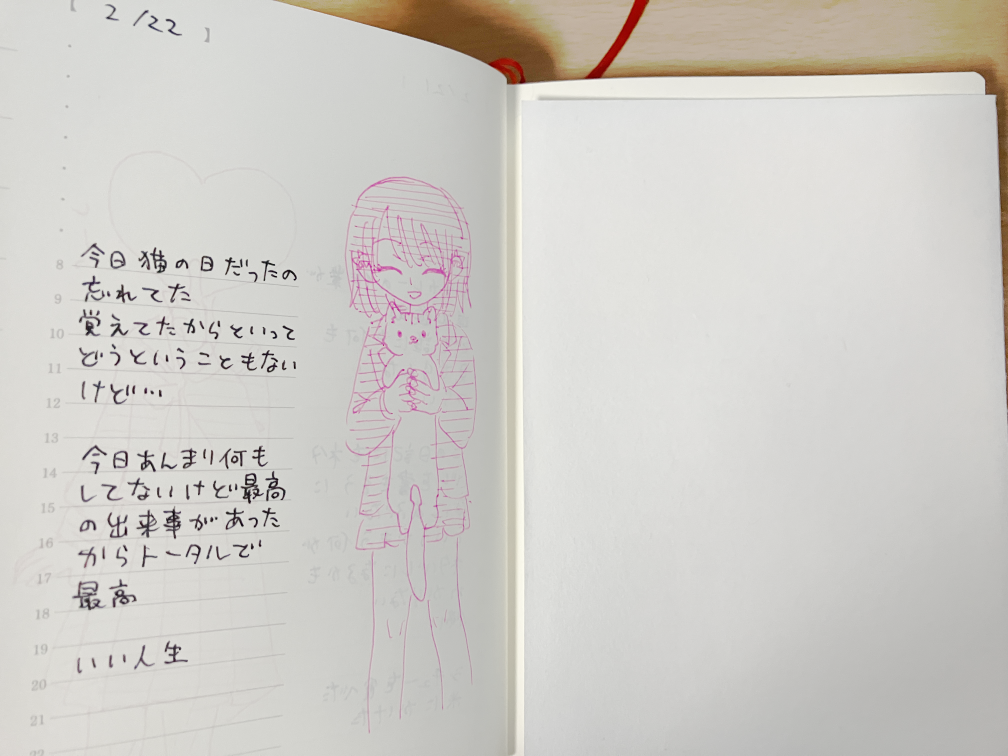 【 2/22 】
今日猫の日だったの
忘れてた
覚えてたからといって
どうということもない
けど…
今日あんまり何も
してないけど最高
の出来事があった
からトータルで
最高
いい人生
8
9
10
11
12
13
14
15
16
17
18
19
20
21
22